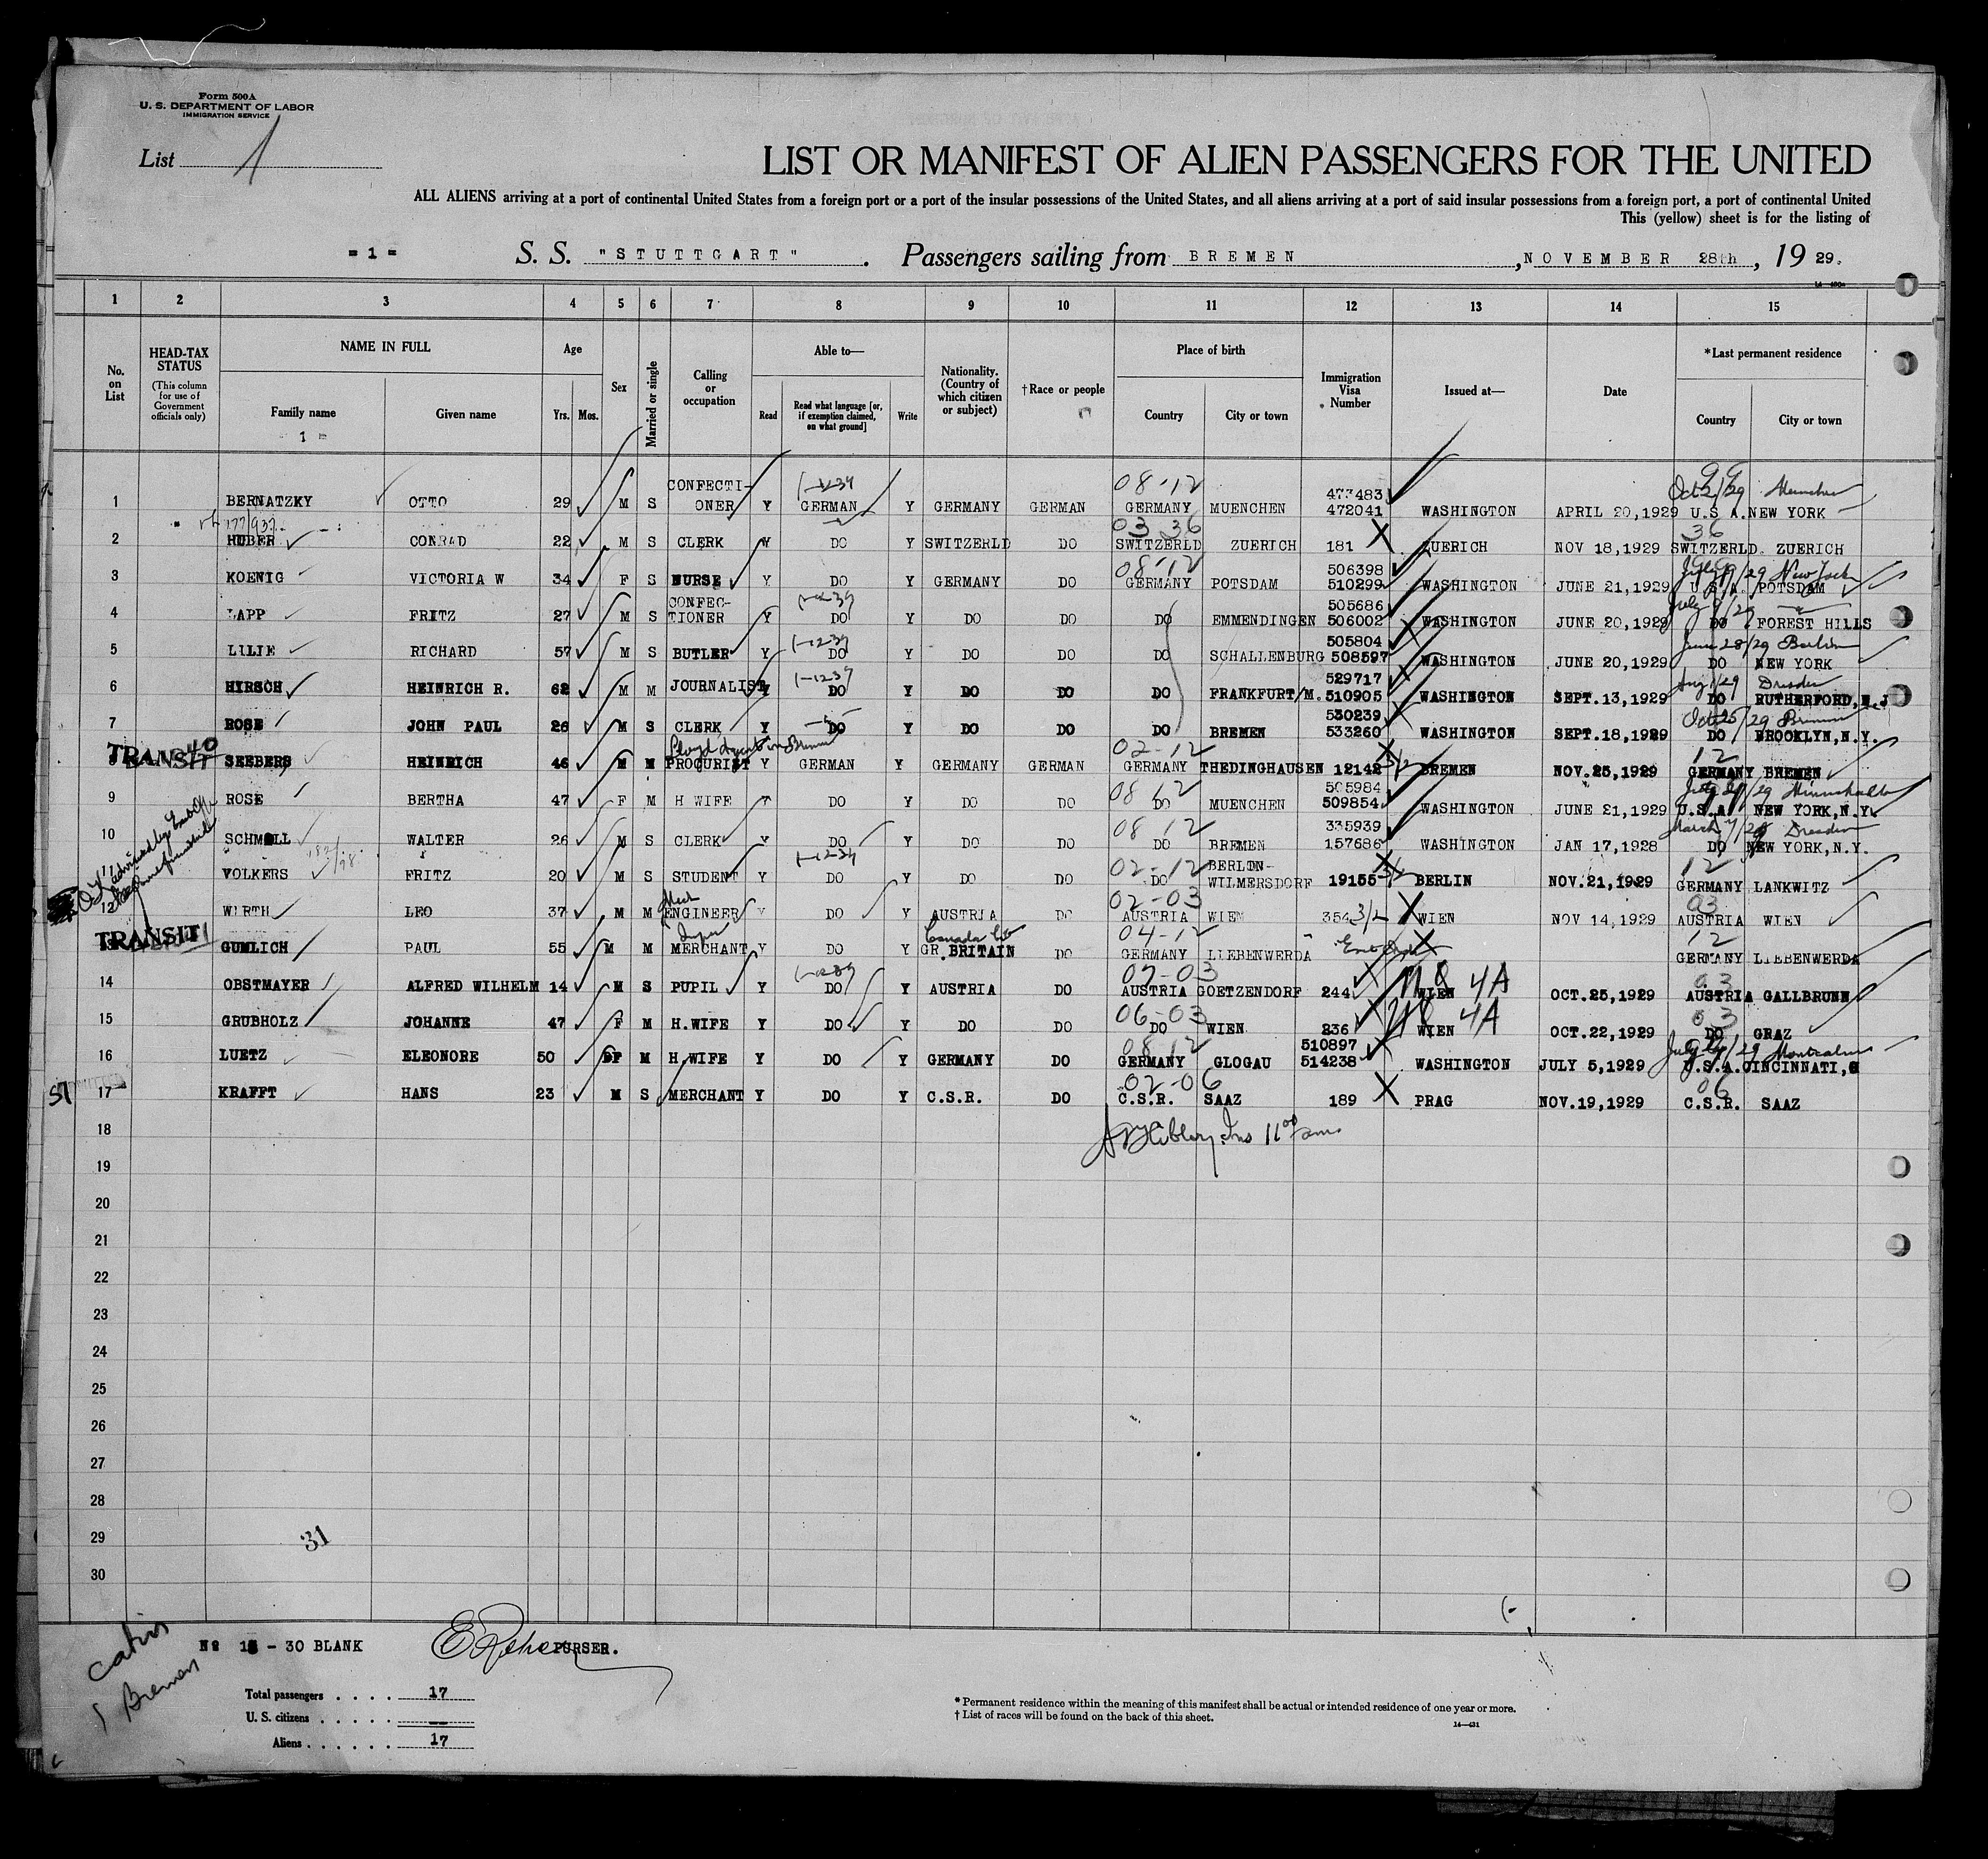 Form 500A
U. S. DEPARTMENT OF LABOR
IMMIGRATION SERVICE
List 1
LIST OR MANIFEST OF ALIEN PASSENGERS FOR THE UNITED
ALL ALIENS arriving at a port of continental United States from a foreign port or a port of the insular possessions of the United States, and all aliens arriving at a port of said insular possessions from a foreign port, a port of continental United
This (yellow) sheet is for the listing of
= 1 = S. S. "STUTTGART". Passengers sailing from BREMEN, NOVEMBER 28th, 19 29.
1 2 3 4 5 6 7 8 9 10 11 12 13 14 15
No. on List
HEAD-TAX STATUS (This column for use of Government officials only)
NAME IN FULL Family name Given name
Age Yrs. Mos.
Sex
Married or single
Calling or occupation
Able to— Read Read what language [or, if exemption claimed, on what ground] Write
Nationality. (Country of which citizen or subject)
†Race or people
Place of birth Country City or town
Immigration Visa Number
Issued at—
Date
*Last permanent residence Country City or town
1 =
08-12 Oct 2/29 Muenchen
1 BERNATZKY OTTO 29 M S CONFECTI-ONER Y GERMAN Y GERMANY GERMAN GERMANY MUENCHEN 473483 472041 WASHINGTON APRIL 20,1929 U.S.A. NEW YORK
177/937
03 36 36
2 HUBER CONRAD 22 M S CLERK Y DO Y SWITZERLD DO SWITZERLD ZUERICH 181 ZUERICH NOV 18,1929 SWITZERLD. ZUERICH
08-12 July 9/29 New York
3 KOENIG VICTORIA W 34 F S NURSE Y DO Y GERMANY DO GERMANY POTSDAM 506398 510299 WASHINGTON JUNE 21,1929 U.S.A. POTSDAM
July 9/29
4 LAPP FRITZ 27 M S CONFEC-TIONER Y DO Y DO DO DO EMMENDINGEN 505686 506002 WASHINGTON JUNE 20,1929 DO FOREST HILLS
June 28/29 Berlin
5 LILIE RICHARD 57 M S BUTLER Y DO Y DO DO DO SCHALLENBURG 505804 508597 WASHINGTON JUNE 20,1929 DO NEW YORK
Aug 1/29 Dresden
6 HIRSCH HEINRICH R. 62 M M JOURNALIST Y DO Y DO DO DO FRANKFURT/M. 529717 510905 WASHINGTON SEPT.13,1929 DO RUTHERFORD,N.J
Oct 25/29 Bremen
7 ROSE JOHN PAUL 26 M S CLERK Y DO Y DO DO DO BREMEN 530239 533260 WASHINGTON SEPT.18,1929 DO BROOKLYN,N.Y.
Lloyd Agents in Bremen 02-12 12
TRANSIT 40
8 SEEBERS HEINRICH 46 M M PROCURIST Y GERMAN Y GERMANY GERMAN GERMANY THEDINGHAUSEN 12142 3/2 BREMEN NOV.25,1929 GERMANY BREMEN
9 ROSE BERTHA 47 F M H WIFE Y DO Y DO DO 08 12 DO MUENCHEN 505984 509854 WASHINGTON JUNE 21,1929 U.S.A. NEW YORK,N.Y.
March 7/28 Dresden
10 SCHMOLL WALTER 26 M S CLERK Y DO Y DO DO 08 12 DO BREMEN 335939 157686 WASHINGTON JAN 17,1928 DO NEW YORK,N.Y.
02-12 12
VOLKERS FRITZ 20 M S STUDENT Y DO Y DO DO DO BERLIN-WILMERSDORF 19155 BERLIN NOV.21,1929 GERMANY LANKWITZ
02-03 03
12 WIRTH LEO 37 M M Mech ENGINEER Y DO Y AUSTRIA DO AUSTRIA WIEN 354 3/2 WIEN NOV 14,1929 AUSTRIA WIEN
04-12 12
TRANSIT 41
GUMLICH PAUL 55 M M MERCHANT Y DO Y Canada GR.BRITAIN DO GERMANY LIEBENWERDA GERMANY LIEBENWERDA
03
14 OBSTMAYER ALFRED WILHELM 14 M S PUPIL Y DO Y AUSTRIA DO AUSTRIA GOETZENDORF 244 WIEN 4A OCT.25,1929 AUSTRIA GALLBRUNN
06-03 03
15 GRUBHOLZ JOHANNE 47 F M H.WIFE Y DO Y DO DO DO WIEN 236 WIEN 4A OCT.22,1929 DO GRAZ
08 12
16 LUETZ ELEONORE 50 F M H.WIFE Y DO Y GERMANY DO GERMANY GLOGAU 510897 514238 WASHINGTON JULY 5,1929 U.S.A. CINCINNATI,O
02-06 06
17 KRAFFT HANS 23 M S MERCHANT Y DO Y C.S.R. DO C.S.R. SAAZ 189 PRAG NOV.19,1929 C.S.R. SAAZ
18
19
20
21
22
23
24
25
26
27
28
29
30
31
No 18 - 30 BLANK PURSER.
Cabin
Bremen
Total passengers . . . . 17
U. S. citizens . . . . . —
Aliens . . . . . . 17
* Permanent residence within the meaning of this manifest shall be actual or intended residence of one year or more.
† List of races will be found on the back of this sheet.
14—431